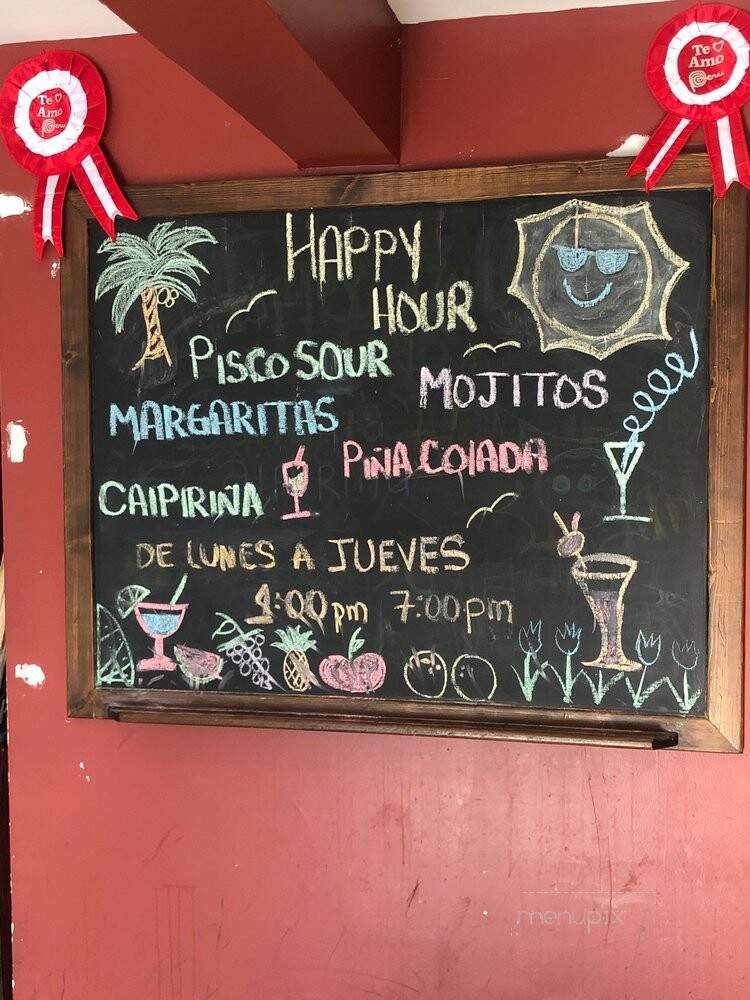 Te
Amo
Perú
Te
Amo
Perú
HAPPY
HOUR
PISCO SOUR
MOJITOS
MARGARITAS
PIÑA COLADA
CAIPIRIÑA
DE LUNES A JUEVES
1:00pm 7:00pm
menupix